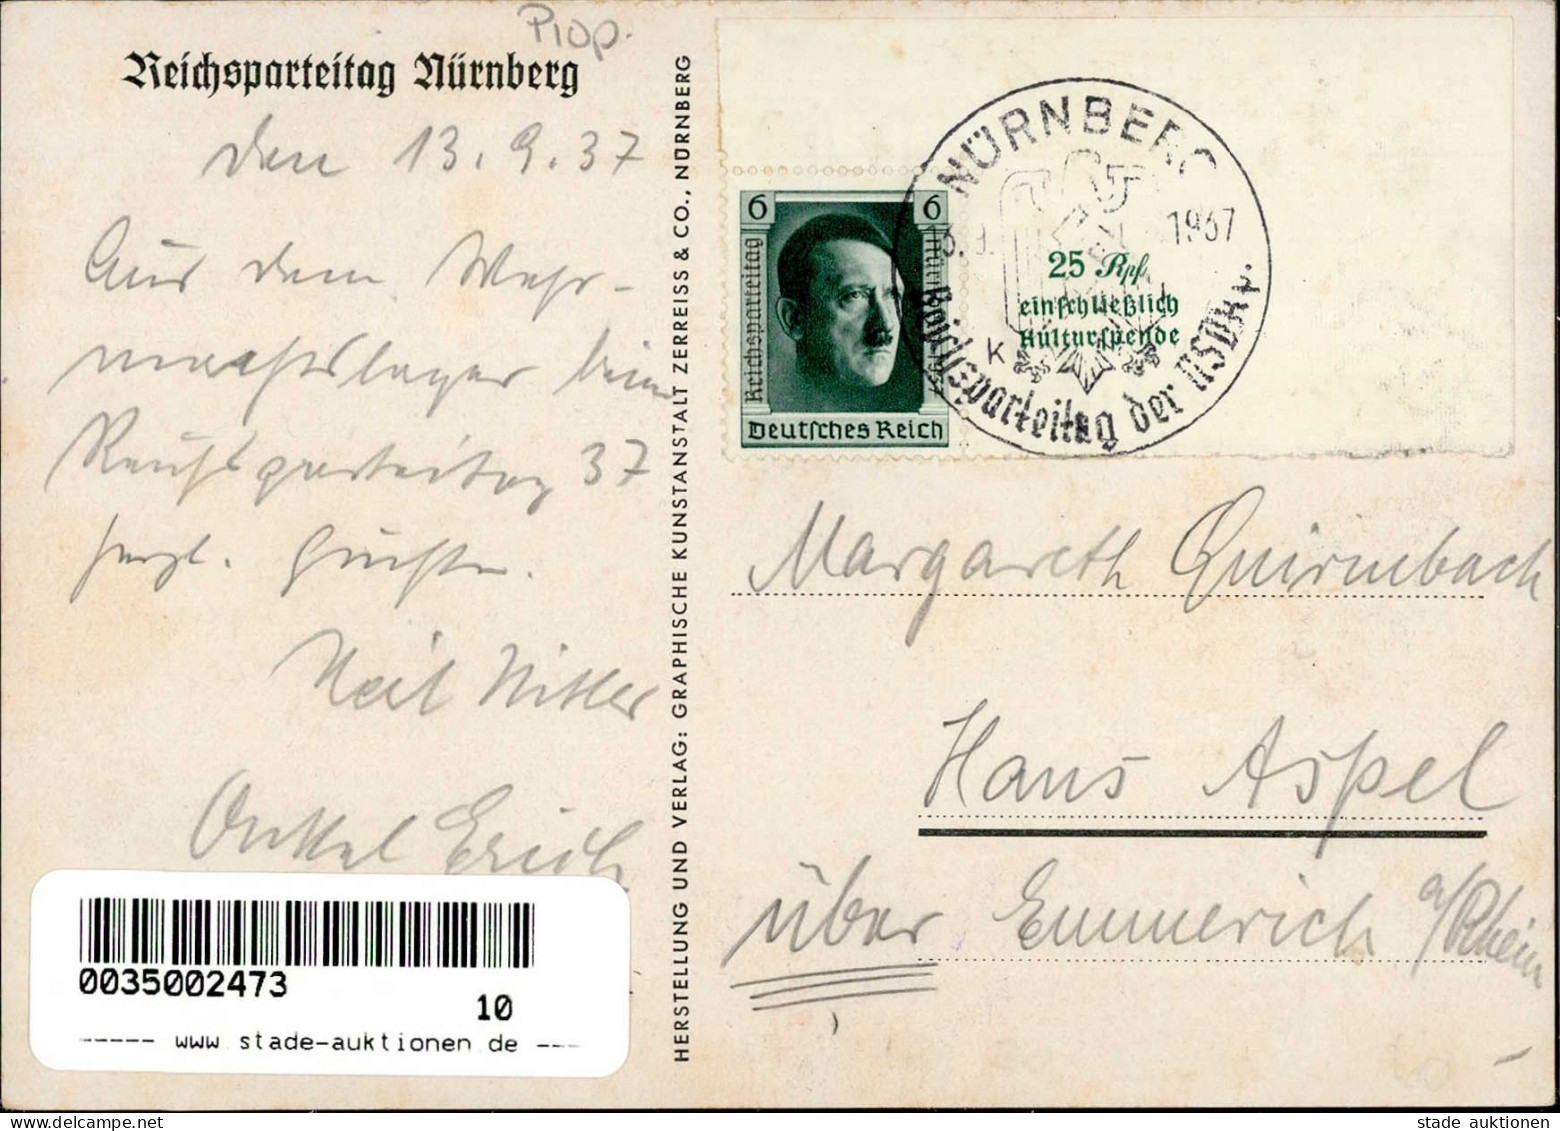 Prop.
Reichsparteitag Nürnberg
den 13.9.37
Aus dem Wehr-
machtslager beim
Reichsparteitag 37
herzl. Grüße.
Heil Hitler
Onkel Erich
HERSTELLUNG UND VERLAG: GRAPHISCHE KUNSTANSTALT ZERREISS & CO., NÜRNBERG
6 6
Reichsparteitag
Nürnberg 1937
Deutsches Reich
25 Rpf.
einschließlich
Kulturspende
NÜRNBERG
1937
K
Reichsparteitag der NSDAP.
Margareth Quirmbach
Hans Aspel
über Emmerich a/Rhein
0035002473
10
----- www.stade-auktionen.de ---
stade auktionen